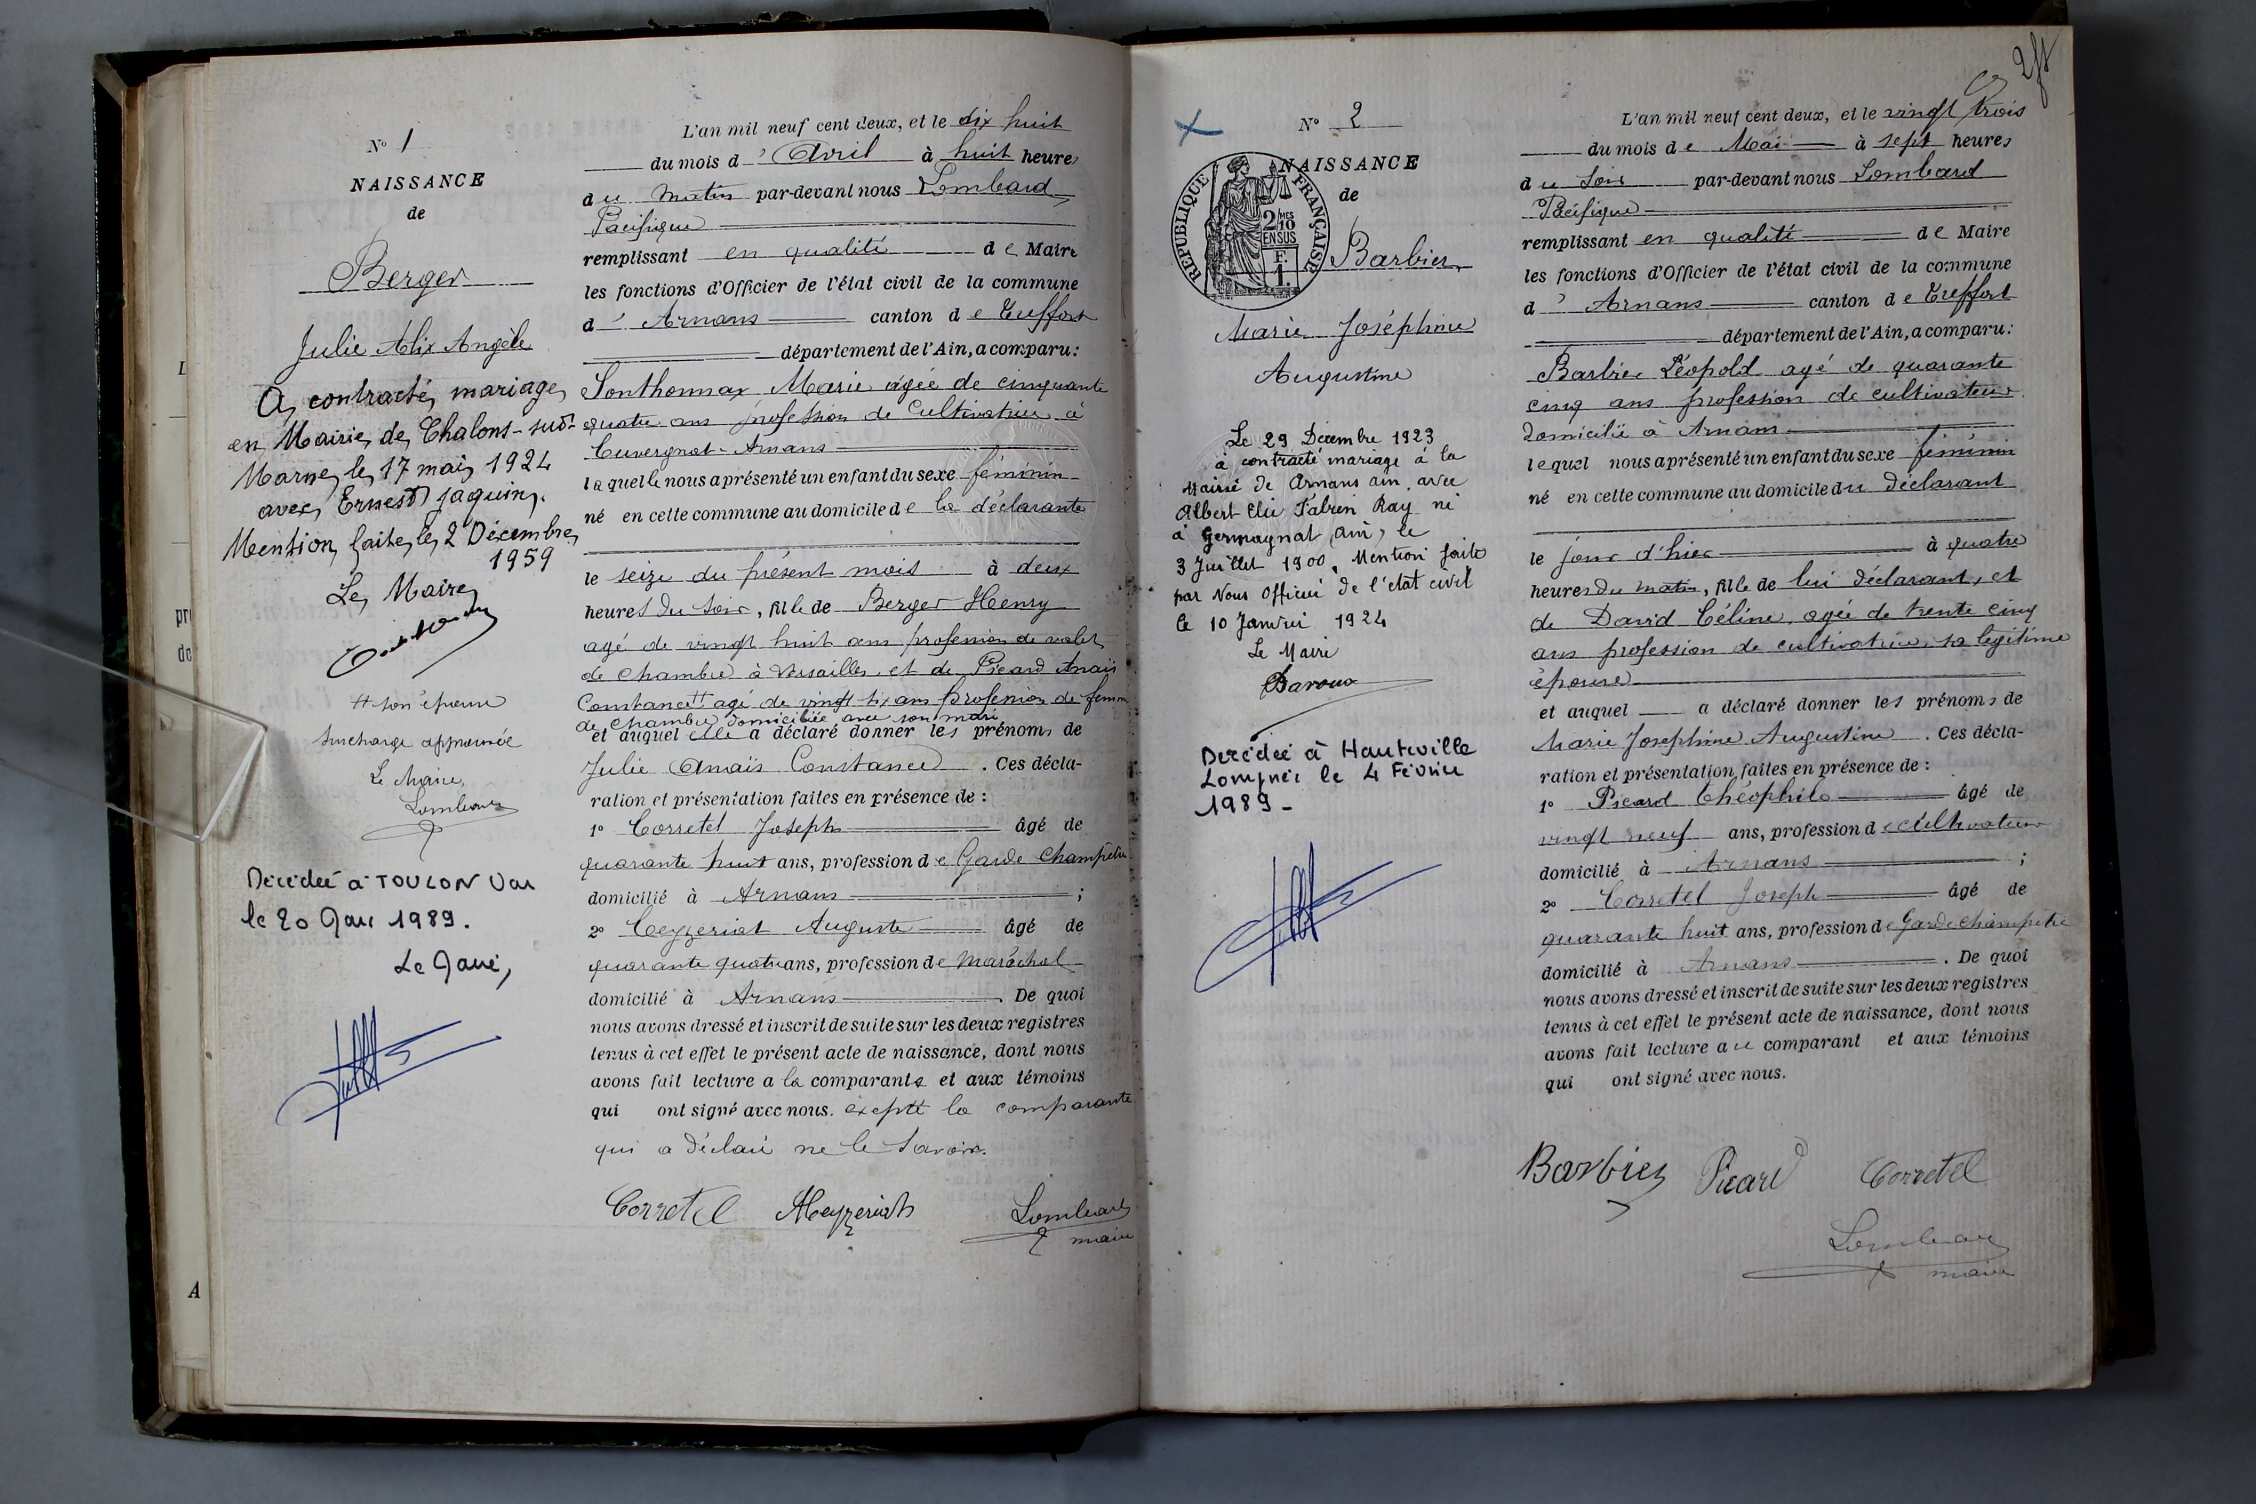 N° 1
NAISSANCE
de
Berger
Julie Alix Angèle
A contracté mariage
en Mairie de Chalons-sur-
Marne le 17 mai 1924
avec Ernest Jaquin.
Mention faite le 2 Décembre
1959
Le Maire
# son épouse
Surcharge approuvée
Le Maire,
Lombard
Décédée à TOULON Var
le 20 1989.
Le
L'an mil neuf cent deux, et le dix huit
du mois d'Avril à huit heures
du matin par-devant nous Lombard
Pacifique
remplissant en qualité de Maire
les fonctions d'Officier de l'état civil de la commune
d'Arnans canton de Treffort
département de l'Ain, a comparu:
Sonthonnax Marie âgée de cinquante
quatre ans profession de Cultivatrice à
Cuvergnat-Arnans
laquelle nous a présenté un enfant du sexe féminin
né en cette commune au domicile de la déclarante
le seize du présent mois à deux
heures du soir, fille de Berger Henry
agé de vingt huit ans profession de valet
de chambre à Versailles et de Picard Anaïs
Constance # agé de vingt six ans profession de femme
de chambre domiciliée avec son mari
et auquel elle a déclaré donner les prénoms de
Julie Anaïs Constance. Ces décla-
ration et présentation faites en présence de :
1° Corretel Joseph âgé de
quarante huit ans, profession de Garde Champêtre
domicilié à Arnans ;
2° Ceyzeriat Auguste âgé de
quarante quatre ans, profession de Maréchal
domicilié à Arnans. De quoi
nous avons dressé et inscrit de suite sur les deux registres
tenus à cet effet le présent acte de naissance, dont nous
avons fait lecture a la comparante et aux témoins
qui ont signé avec nous. exepté la comparante
qui a déclaré ne le savoir.
Corretel Ceyzeriat Lombard
maire
N° 2
NAISSANCE
de
REPUBLIQUE FRANÇAISE
2/10 MES
EN SUS
F.
1.
Barbier
Marie Joséphine
Augustine
Le 29 Décembre 1923
à contracté mariage à la
Mairie de Arnans ain avec
Albert Elie Fabien Ray né
à Germagnat (Ain) le
3 Juillet 1900. Mention faite
par Nous Officier de l'état civil
le 10 Janvier 1924
Le Maire
Baroux
Décédée à Hauteville
Lompnes le 4 Février
1989-
L'an mil neuf cent deux, et le vingt trois
du mois de Mai à sept heures
du soir par-devant nous Lombard
Pacifique
remplissant en qualité de Maire
les fonctions d'Officier de l'état civil de la commune
d'Arnans canton de Treffort
département de l'Ain, a comparu:
Barbier Léopold agé de quarante
cinq ans profession de cultivateur
domicilié à Arnans
lequel nous a présenté un enfant du sexe féminin
né en cette commune au domicile du déclarant
le jour d'hier à quatre
heures du matin, fille de lui déclarant, et
de David Céline, agée de trente cinq
ans profession de cultivatrice, sa légitime
épouse
et auquel a déclaré donner les prénoms de
Marie Josephine Augustine. Ces décla-
ration et présentation faites en présence de :
1° Picard Théophile âgé de
vingt neuf ans, profession de cultivateur
domicilié à Arnans ;
2° Corretel Joseph âgé de
quarante huit ans, profession de Garde champêtre
domicilié à Arnans. De quoi
nous avons dressé et inscrit de suite sur les deux registres
tenus à cet effet le présent acte de naissance, dont nous
avons fait lecture au comparant et aux témoins
qui ont signé avec nous.
Barbier Picard Corretel
Lombard
maire